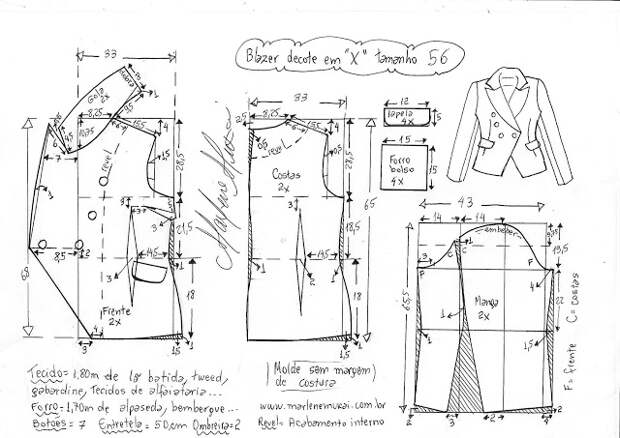 Blazer decote em "X" tamanho 56
33
Gola
2x
nuca
1
8,25
15,5
4
28,5
10,75
6
7
revel
1
3
3
21,5
8,5
2
14,5
1
68
18
Frente
2x
3
4
1,5
33
2,5
8,25
15,5
4
revel
28,5
Costas
2x
65
3
18,5
14,5
1
2
1
18
1
12
lapela
4x
5
15
Forro
bolso
4x
15
43
14
14
embeber
13,5
3
C
C
1
P
F
4
65,5
22
Manga
2x
1
1,5
2
3
2
2
F= frente C= costas
Tecido= 1,80m de lã batida, tweed,
gabardine, Tecidos de alfaiataria...
Forro= 1,70m de alpaseda, bembergue...
Botões= 7 Entretela= 50cm Ombreira=2
Molde sem margem
de costura
www.marlenemukai.com.br
Revel= Acabamento interno